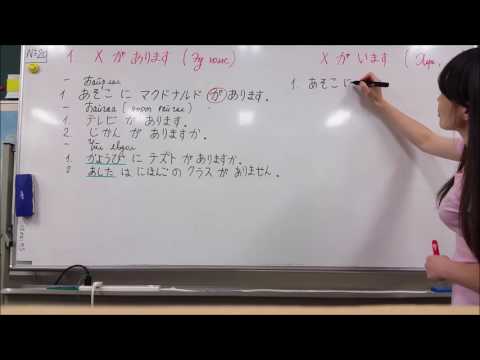 №20
1. X が あります (Эд юмс)
— Байршил
1. あそこ に マクドナルド が あります.
— Байгаа ( )
1. テレビ が あります.
2. じかん が ありますか.
— Үйл явдал
1. かようび に テスト が ありますか.
2. あした は にほんご の クラス が ありません.
X が います (Хүн,
1. あそこ に